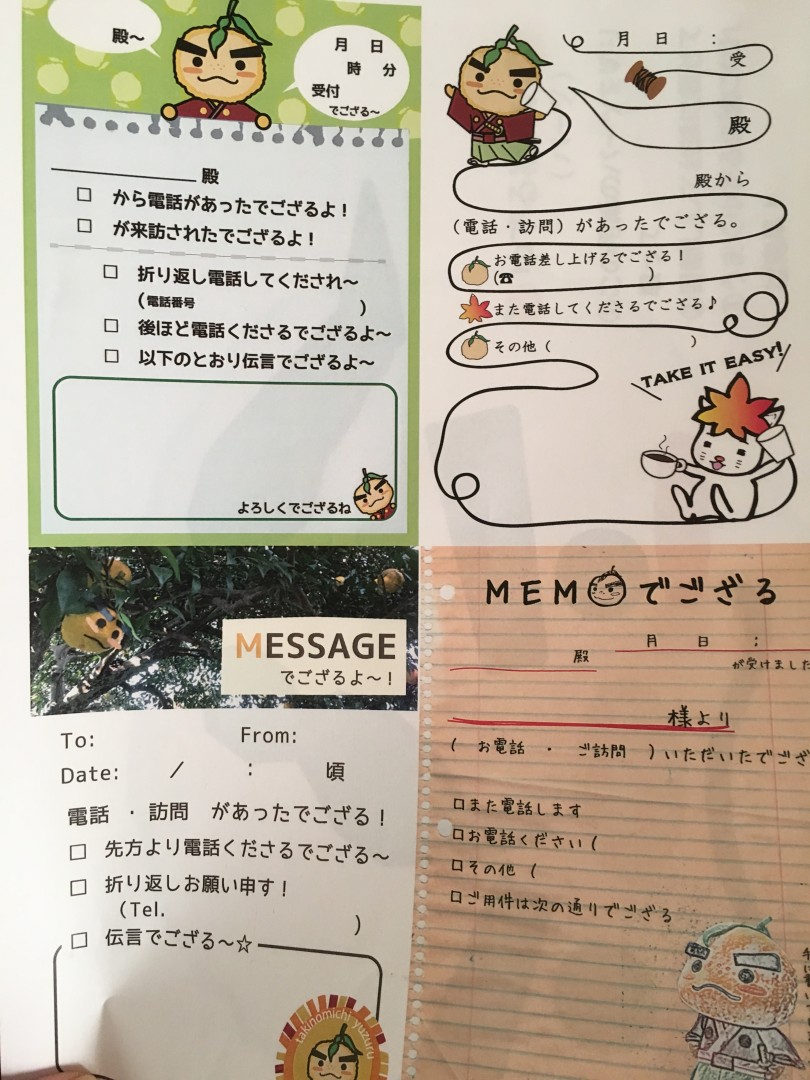 殿〜
月 日
時 分
受付
でござる〜
殿
□ から電話があったでござるよ！
□ が来訪されたでござるよ！
□ 折り返し電話してくだされ〜
(電話番号 )
□ 後ほど電話くださるでござるよ〜
□ 以下のとおり伝言でござるよ〜
よろしくでござるね
月 日 :
受
殿
殿から
(電話・訪問)があったでござる。
お電話差し上げるでござる！
(☎ )
また電話してくださるでござる♪
その他 ( )
TAKE IT EASY!
MESSAGE
でござるよ〜！
To: From:
Date: / : 頃
電話 ・ 訪問 があったでござる！
□ 先方より電話くださるでござる〜
□ 折り返しお願い申す！
(Tel. )
□ 伝言でござる〜☆
takinomichi yuzuru
MEMOでござる
月 日 :
殿
が受けました
様より
( お電話 ・ ご訪問 )いただいたでござ
□また電話します
□お電話ください(
□その他 (
□ご用件は次の通りでござる